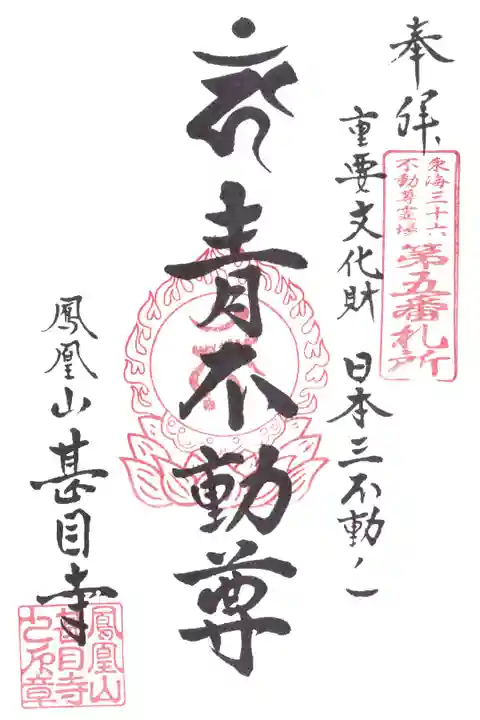 奉拝
東海三十六
不動尊霊場
第五番札所
重要文化財 日本三不動ノ一
青不動尊
鳳凰山 甚目寺
鳳凰山
甚目寺
之印章